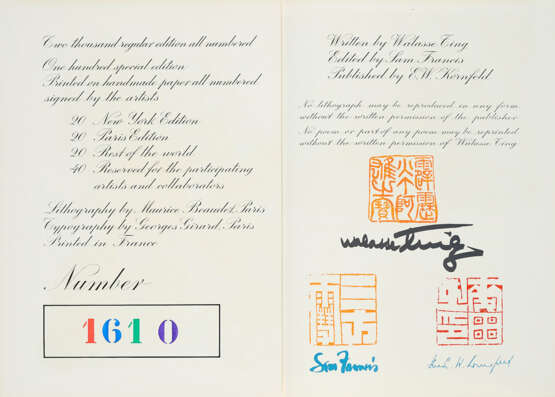 Two thousand regular edition all numbered
One hundred special edition
Printed on handmade paper all numbered
signed by the artists
20 New York Edition
20 Paris Edition
20 Rest of the world
40 Reserved for the participating
artists and collaborators
Lithography by Maurice Beaudet, Paris
Typography by Georges Girard, Paris
Printed in France
Number
1610
Written by Walasse Ting
Edited by Sam Francis
Published by E.W. Kornfeld
No lithograph may be reproduced in any form
without the written permission of the publisher
No poem or part of any poem may be reprinted
without the written permission of Walasse Ting
walasse Ting
Sam Francis